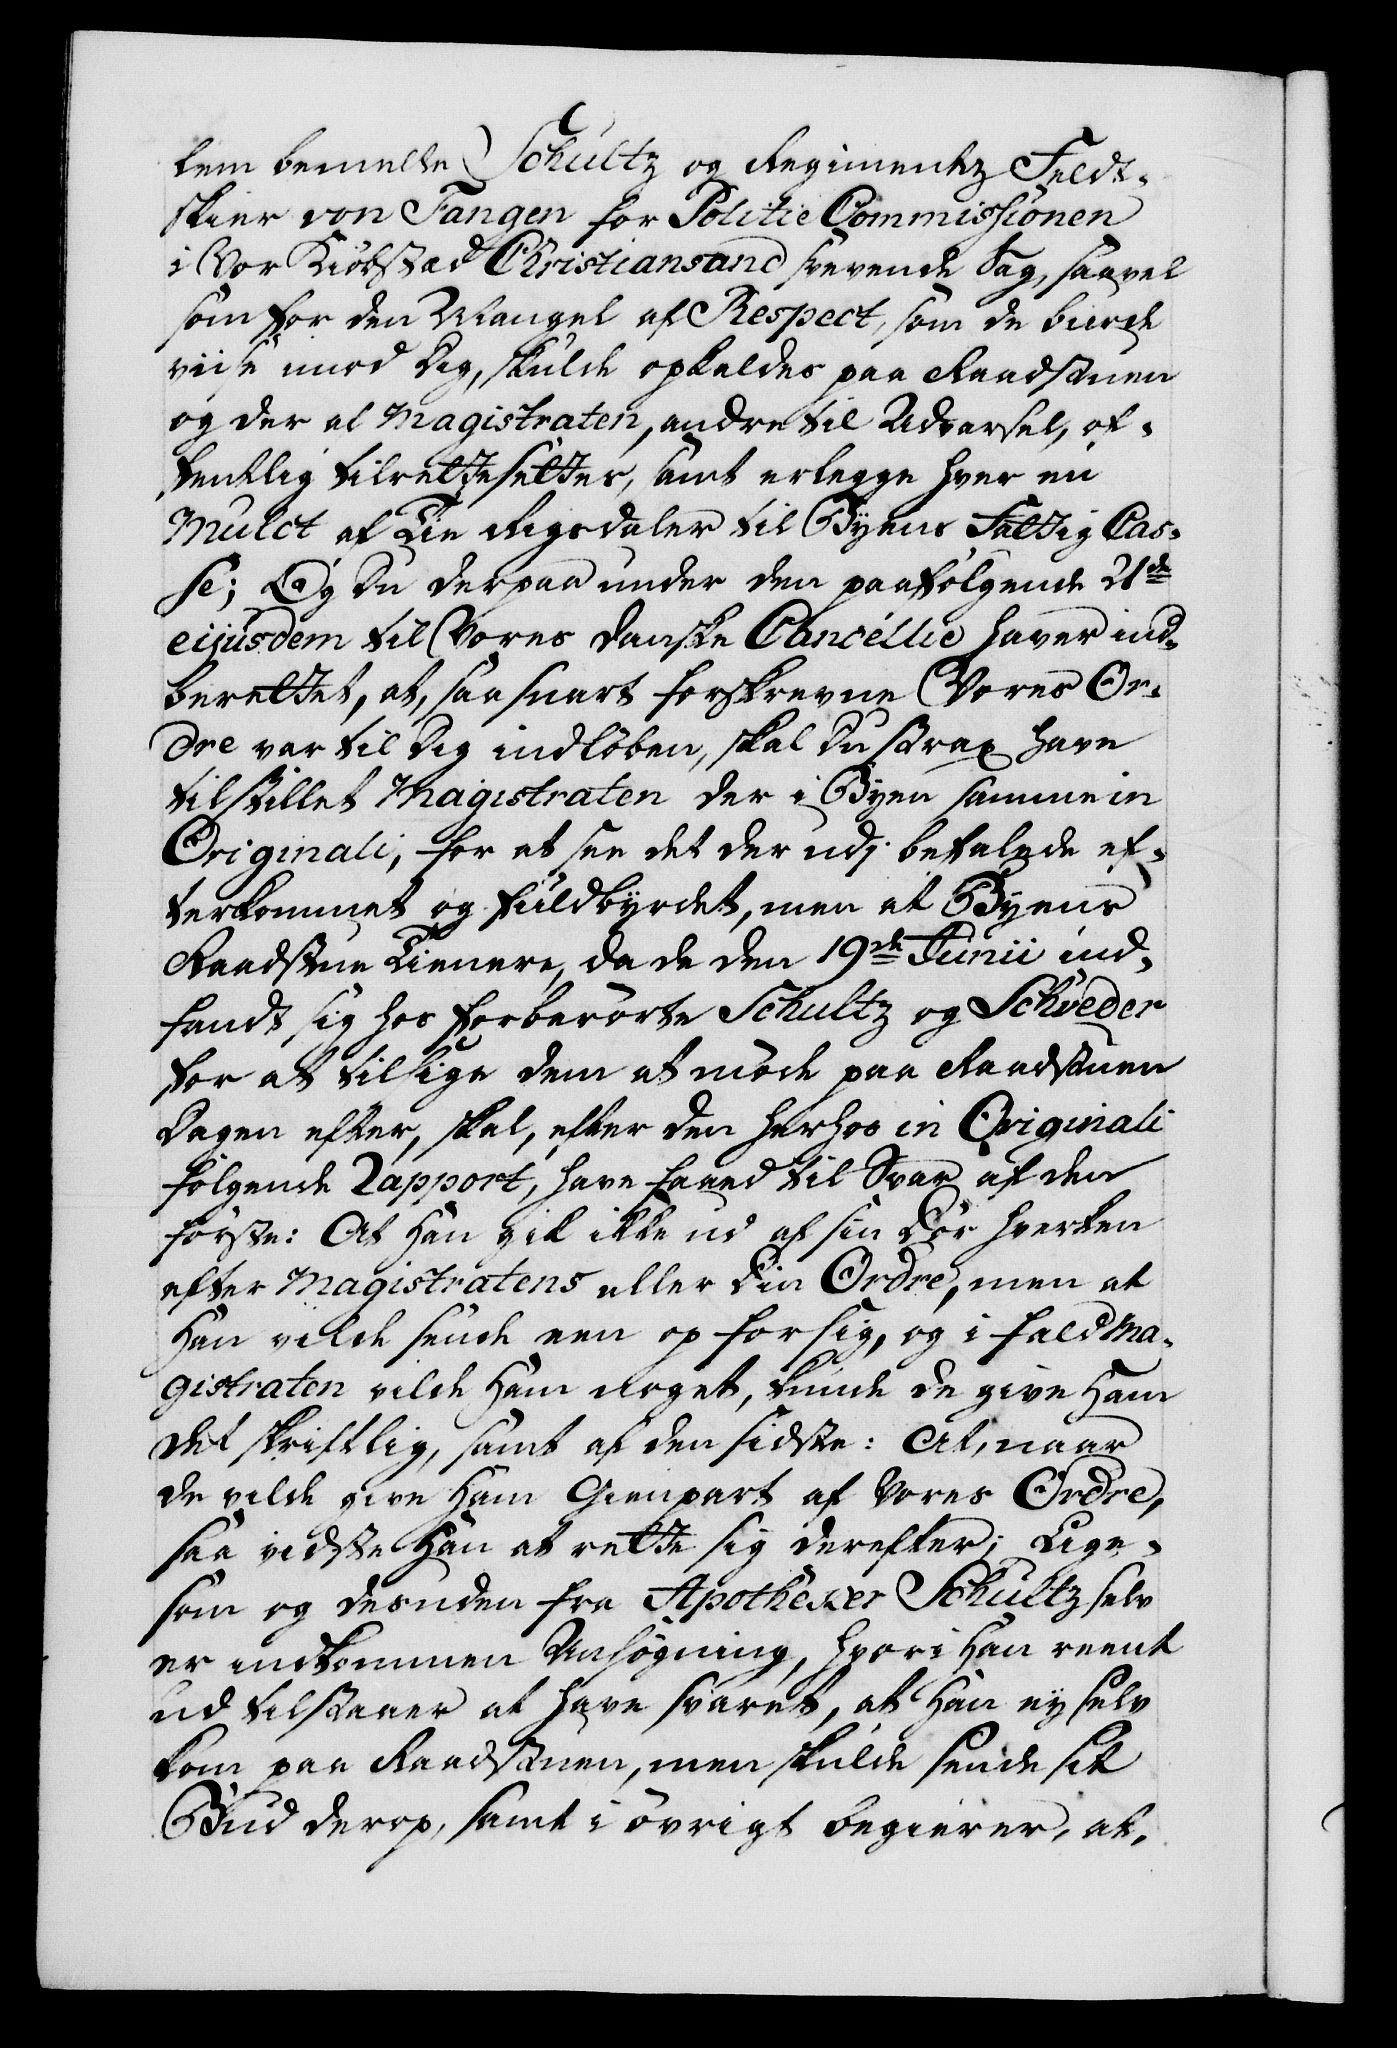 lem bemelte Schultz og Regimentz Feldt-
skier von Fangen for Politie Commissionen
i Vor Kiøbstæd Christiansand svevende Sag, saavel
som for den Mangel af Respect, som de burde
viise imod Dig, skulde opkaldes paa Raadstuen
og der af Magistraten, andre til Advarsel, of-
fentlig tilretteSettes, samt erlegge hver en
Mulct af Tie Rigsdaler til Byens Fattig Cas-
se; Og Du derpaa under den paafølgende 21de
eijusdem til Vores danske Cancellie haver ind-
berettet, at, saa snart forskrevne Vores Or-
dre var til Dig indløben, skal Du strax have
tilstillet Magistraten der i Byen samme in
Originali, for at see det der udj befalede ef-
terkommet og fuldbyrdet, men at Byens
Raadstue Tienere, da de den 19de Junii ind-
fandt sig hos forberørte Schultz og Schrøder
for at tilsige dem at møde paa Raadstuen
Dagen efter, skal, efter den herhos in Originali
følgende Rapport, have faaed til Svar af den
første: At Han gik ikke ud af sin Dør hverken
efter Magistratens eller Din Ordre, men at
Han vilde sende een op for sig, og i fald Ma-
gistraten vilde Ham noget, kunde de give Ham
det skriftlig, samt af den sidste: At, naar
de vilde give Ham Gienpart af Vores Ordre,
saa vidste Han at rette sig derefter; Lige-
som og desuden fra Apotheker Schultz selv
er indkommen Ansøgning, hvori Han reent
ud tilstaaer at have svaret, at Han ey selv
kom paa Raadstuen, men skulde sende sit
Bud derop, samt i øvrigt begierer, at,